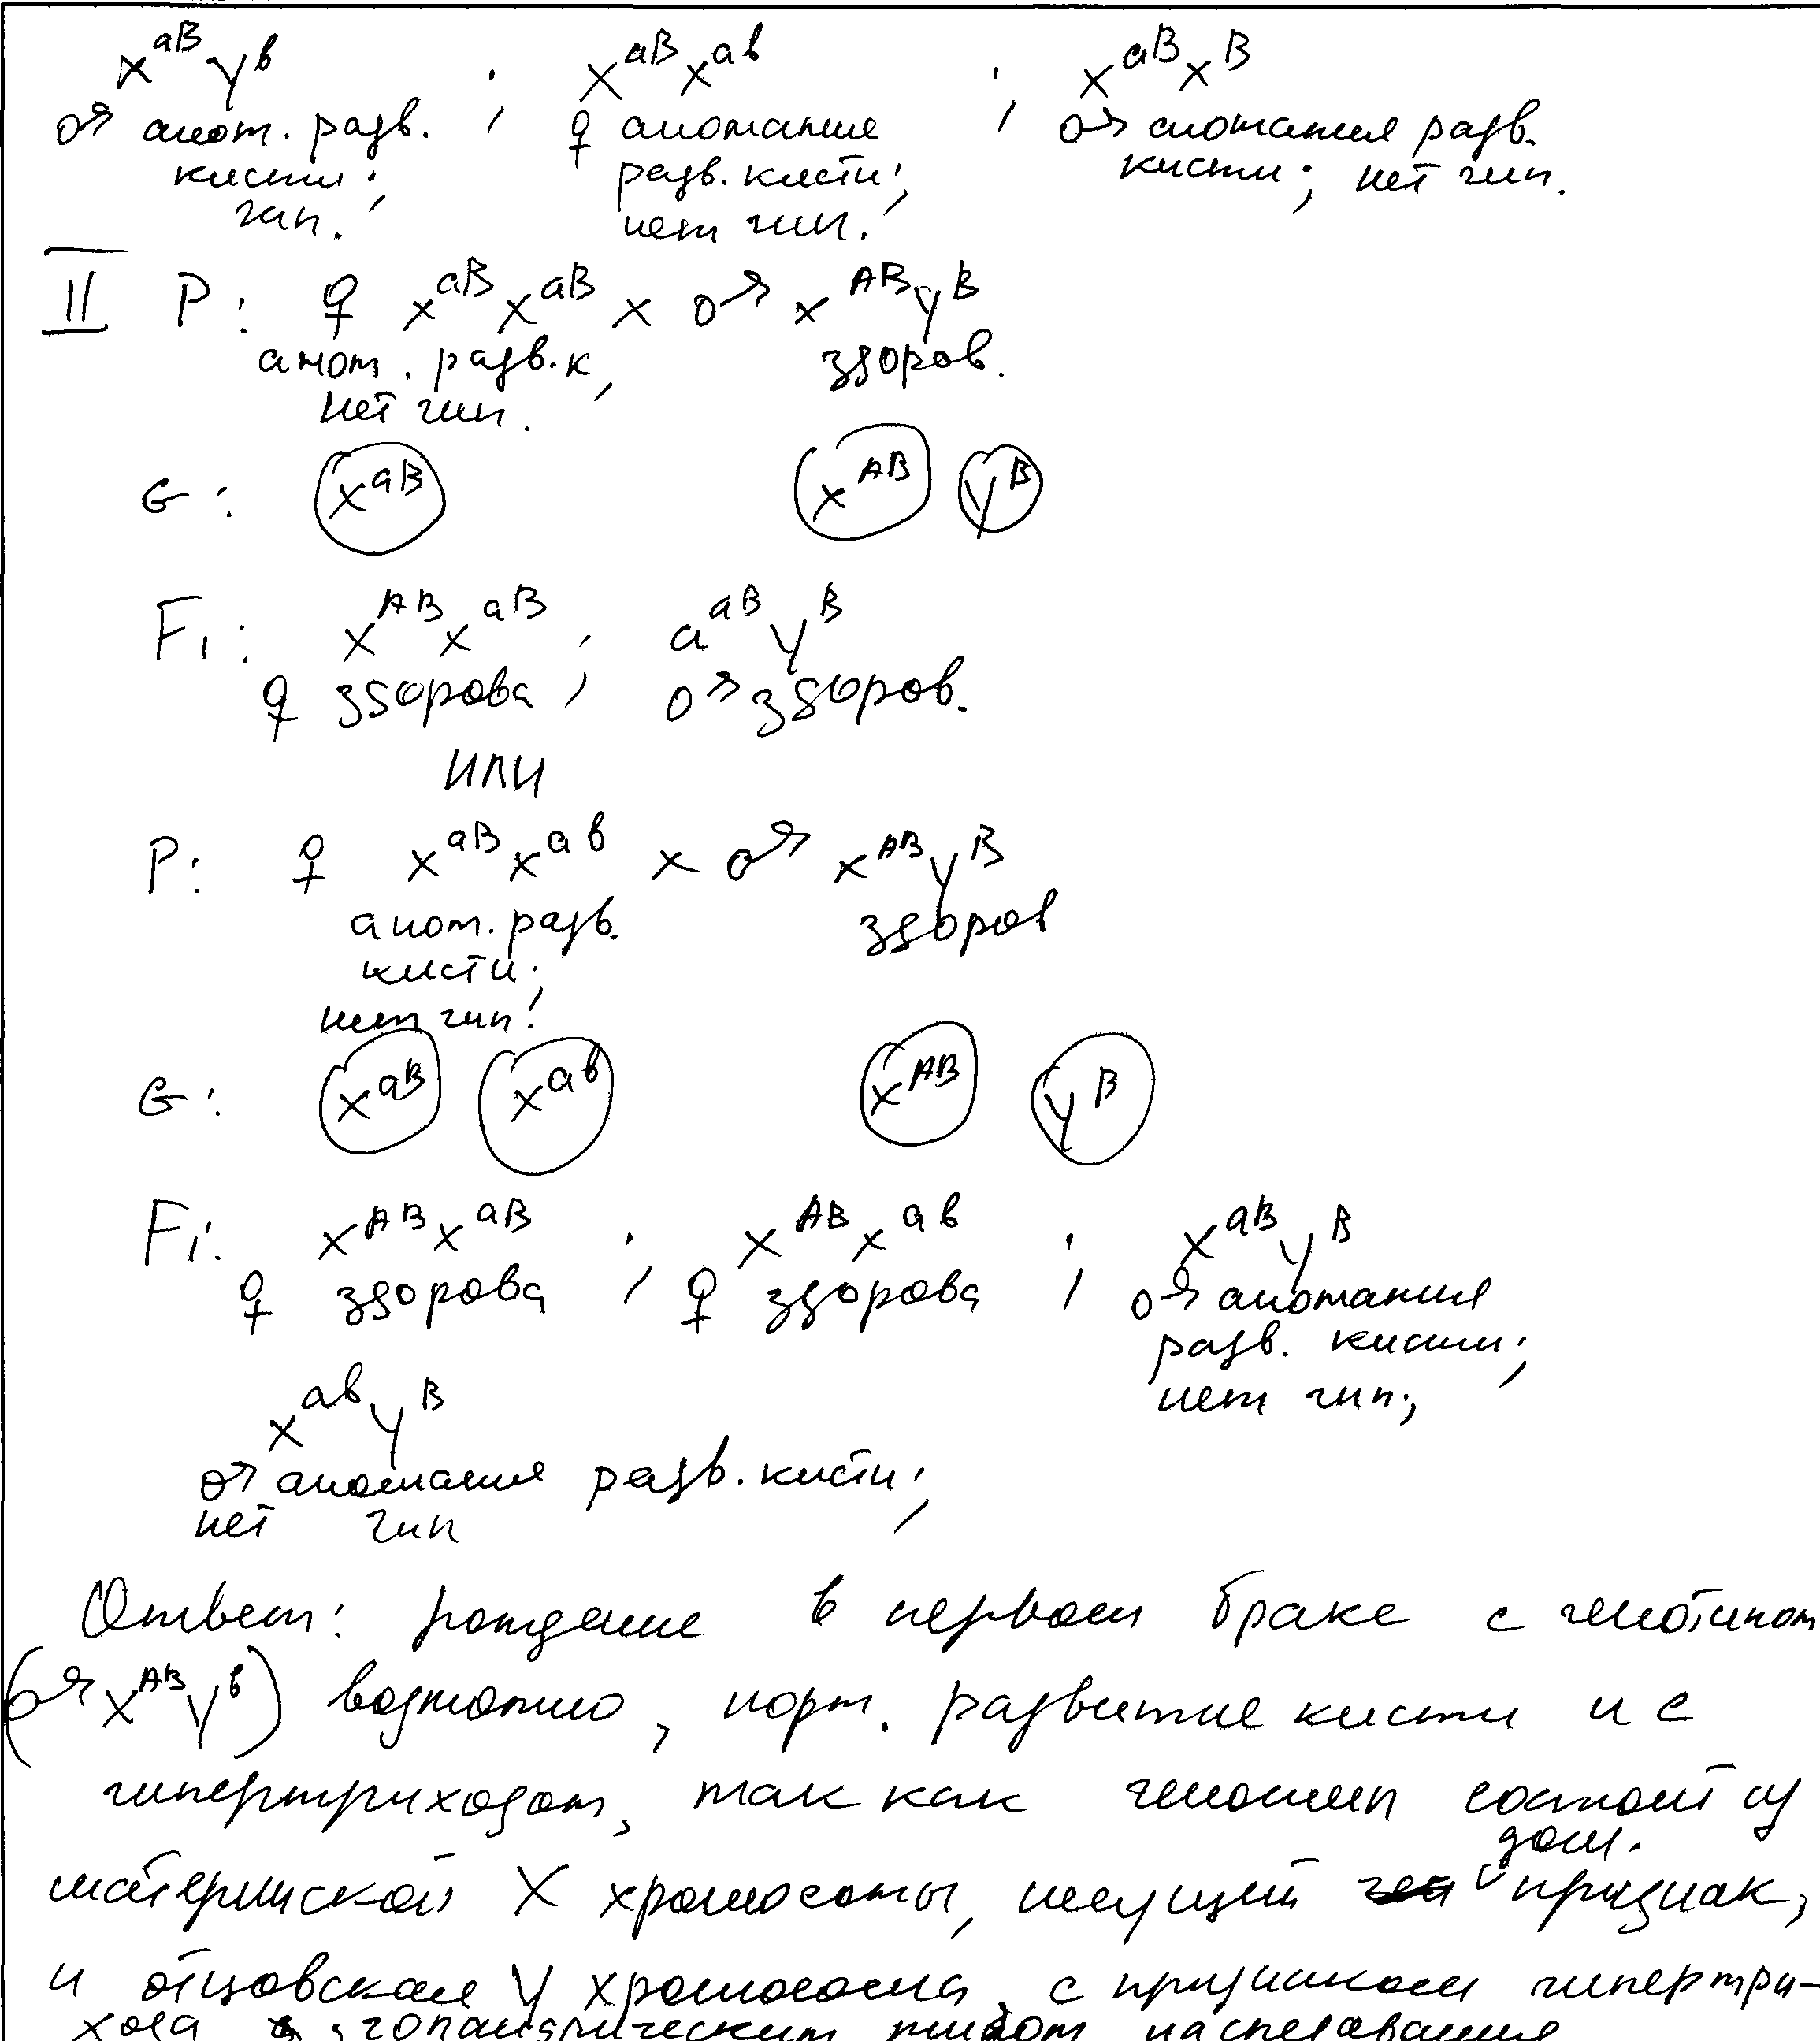 X^aB Y^в ; X^aB X^aв ; X^aB X^B
♂ аном. разв. ♀ аномалия ♂ аномалия разв.
кисти; разв. кисти; кисти; нет гип.
гип. нет гип.
II P: ♀ X^aB X^aB × ♂ X^AB Y^B
аном. разв. к, здоров.
нет гип.
G: X^aB X^AB Y^B
F1: X^AB X^aB ; a^aB Y^B
♀ здорова ; ♂ здоров.
ИЛИ
P: ♀ X^aB X^aв × ♂ X^AB Y^B
аном. разв. здоров
кисти;
нет гип.
G: X^aB X^aв X^AB Y^B
F1: X^AB X^aB ; X^AB X^aв ; X^aB Y^B
♀ здорова ; ♀ здорова ; ♂ аномалия
разв. кисти;
нет гип;
X^aв Y^B
♂ аномалия разв. кисти;
нет гип
Ответ: рождение в первом браке с генотипом
(♂ X^AB Y^в) возможно, норм. развитие кисти и с
гипертрихозом, так как генотип состоит из
материнской X хромосомы, несущей дом. признак,
и отцовская Y хромосома, с признаком гипертри-
хоза с голандрическим типом наследования